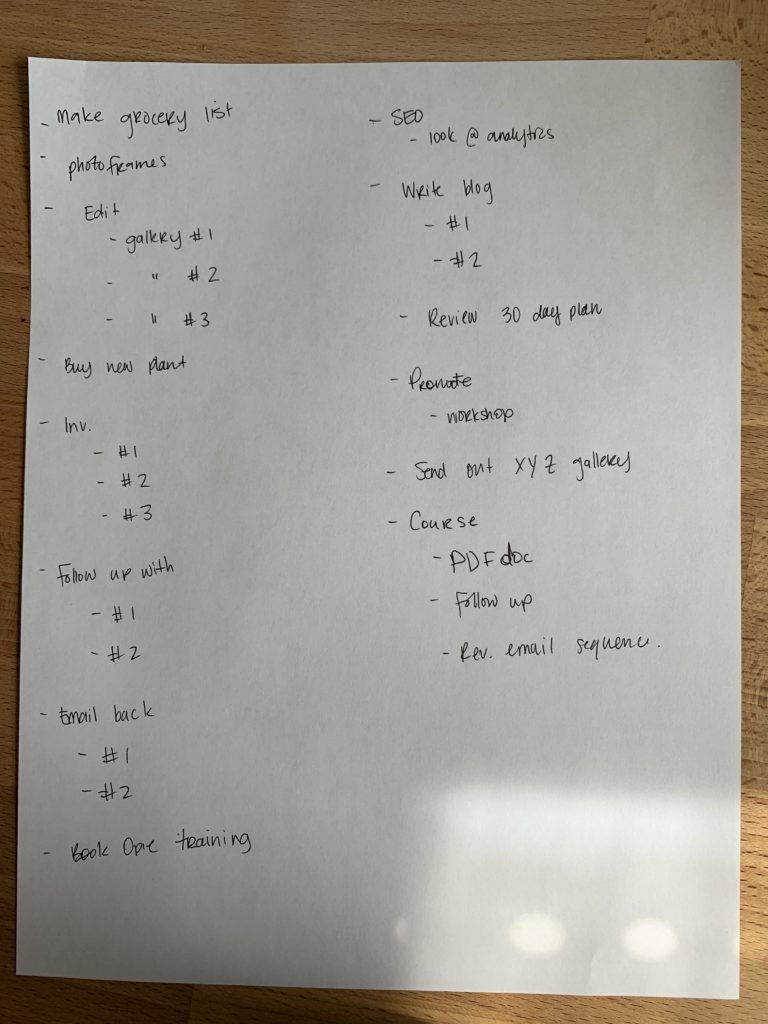 - Make grocery list
- photo frames
- Edit
- gallery #1
- " #2
- " #3
- Buy new plant
- Inv.
- #1
- #2
- #3
- Follow up with
- #1
- #2
- Email back
- #1
- #2
- Book training
- SEO
- look @ analytics
- Write blog
- #1
- #2
- Review 30 day plan
- Promote
- workshop
- Send out XYZ gallery
- Course
- PDF doc
- Follow up
- Rev. email sequence.